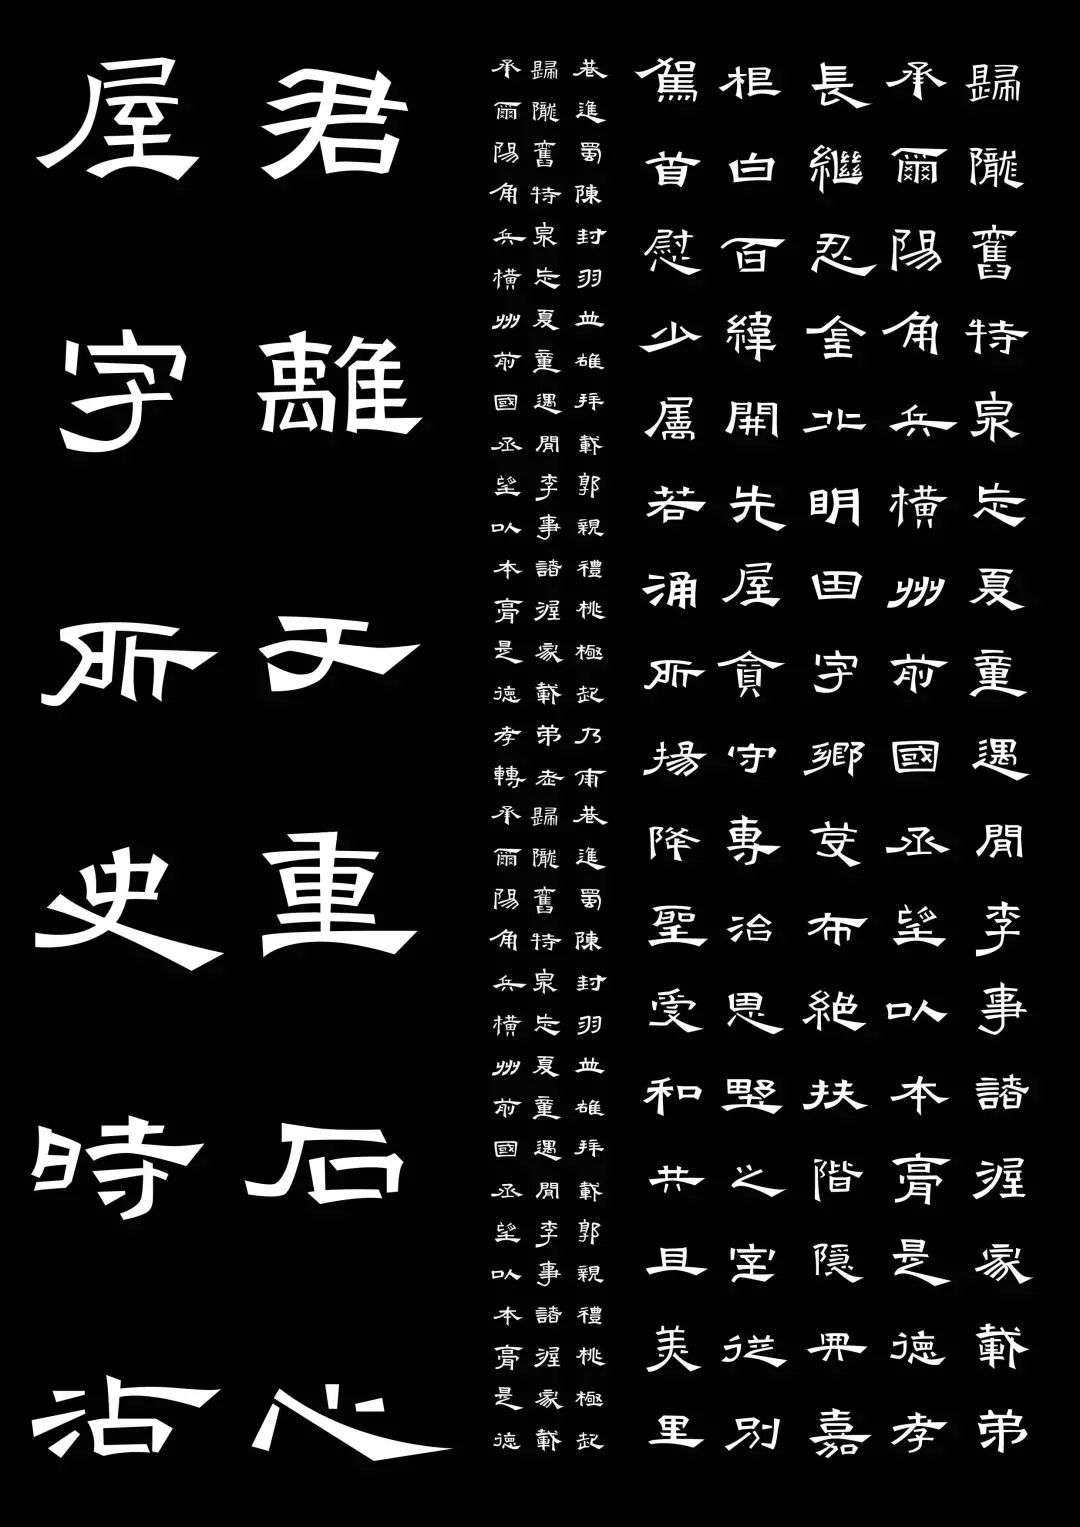 歸隴舊特泉忘夏童遇閒李事諸渥家載弟
承爾陽角兵橫州前國丞望以本膏是德孝
長繼忍金北明田字鄉芟布絕扶階隱冊嘉
根白百緯開先屋貪守專治思野之室從別
駕首慰少厲若涌所揚降聖受和共且美里
巷進蜀陳封羽並雄拜載郭親禮桃極起乃甫巷進蜀陳封羽並雄拜載郭親禮桃極起
歸隴舊特泉忘夏童遇閒李事諸渥家載弟歸隴舊特泉忘夏童遇閒李事諸渥家載
承爾陽角兵橫州前國丞望以本膏是德孝轉承爾陽角兵橫州前國丞望以本膏是德
君離于重石心
屋字所史時沾